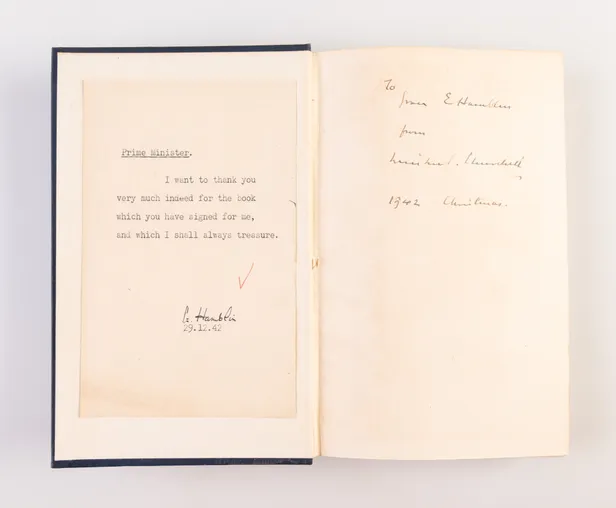 Prime Minister.
I want to thank you
very much indeed for the book
which you have signed for me,
and which I shall always treasure.
G. Hamblin
29.12.42
To
Grace E Hamblin
from
Winston S. Churchill
1942 Christmas.